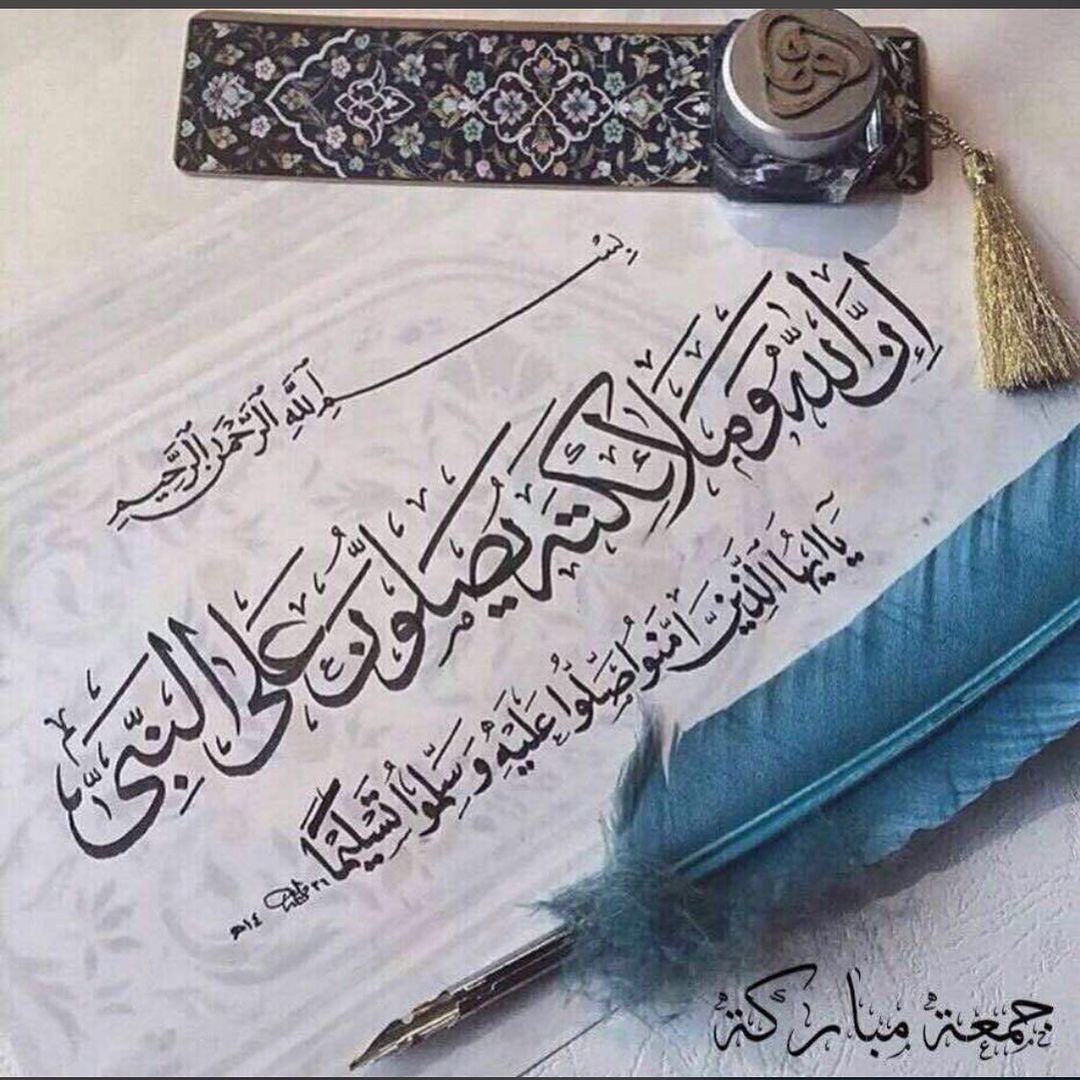 بِسْمِ اللَّهِ الرَّحْمَنِ الرَّحِيمِ
إِنَّ اللَّهَ وَمَلَائِكَتَهُ يُصَلُّونَ عَلَى النَّبِيِّ
يَا أَيُّهَا الَّذِينَ آمَنُوا صَلُّوا عَلَيْهِ وَسَلِّمُوا تَسْلِيمًا
جمعة مباركة